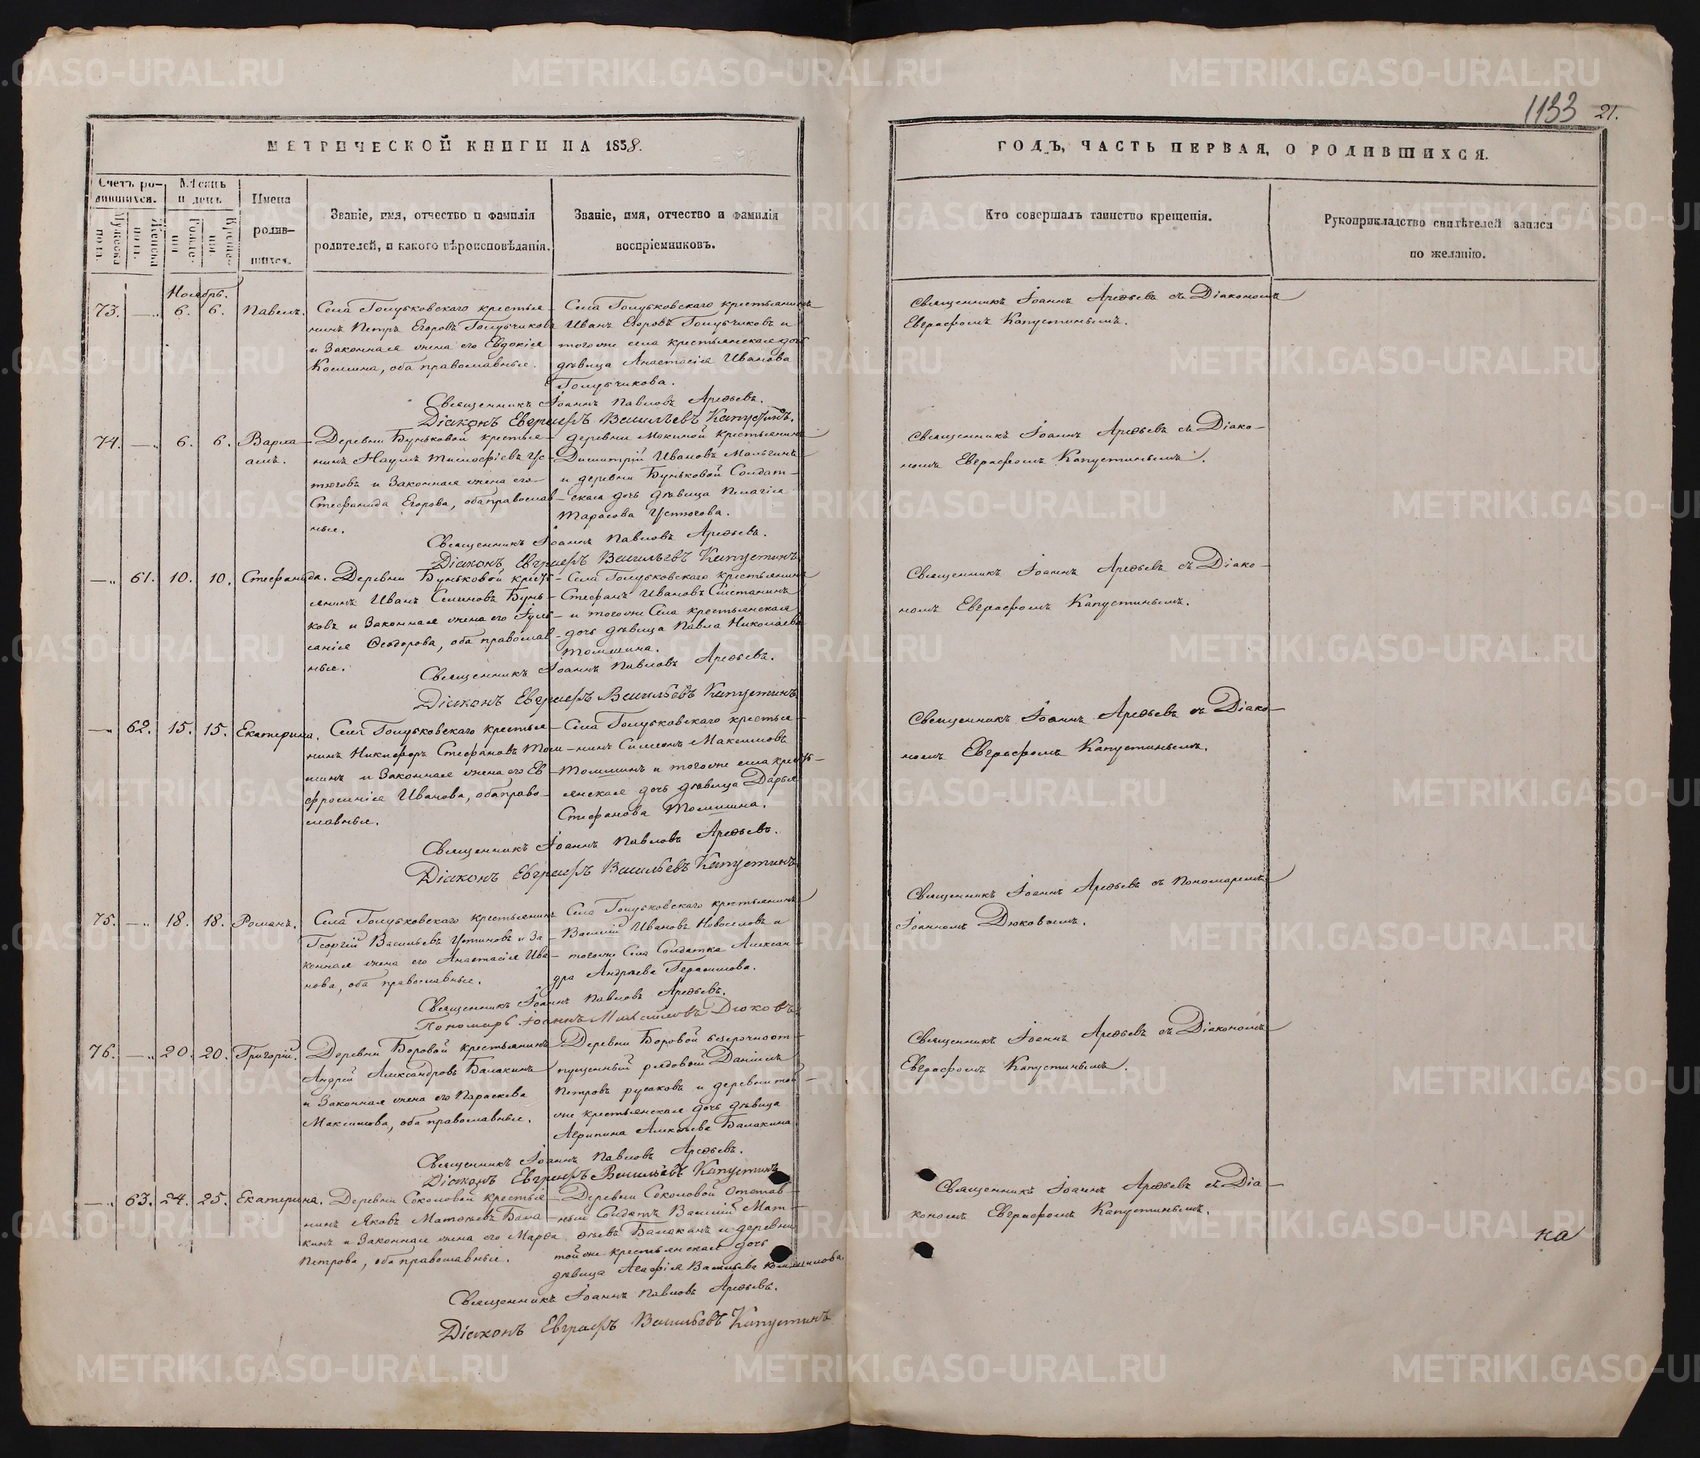 1133 21.
МЕТРИЧЕСКОЙ КНИГИ НА 1858.
Счетъ родившихся.
Мужеска пола
Женска пола.
Мѣсяцъ и день
Рожденія
Крещенія
Имена родившихся.
Званіе, имя, отчество и фамилія родителей, и какого вѣроисповѣданія.
Званіе, имя, отчество и фамилія воспріемниковъ.
ГОДЪ, ЧАСТЬ ПЕРВАЯ, О РОДИВШИХСЯ.
Кто совершалъ таинство крещенія.
Рукоприкладство свидѣтелей записи по желанію.
Ноябрь.
73. — „ 6. 6. Павелъ.
Села Голубковскаго крестья-
нинъ Петръ Егоровъ Голубчиковъ
и Законная жена его Евдокія
Космина, оба православные.
Села Голубковскаго крестьянинъ
Иванъ Егоровъ Голубчиковъ и
тогоже села крестьянская дочь
дѣвица Анастасія Иванова
Голубчикова.
Священникъ Іоаннъ Арефьевъ съ Діакономъ
Евграфомъ Капустинымъ.
Священникъ Іоаннъ Павловъ Арефьевъ.
Діаконъ Евграфъ Васильевъ Капустинъ.
74. — „ 6. 6. Варла-
амъ.
Деревни Буньковой крестья-
нинъ Наумъ Тимофіевъ Ус-
тюговъ и Законная жена его
Стефанида Егорова, оба православ-
ные.
деревни Мокиной крестьянинъ
Димитрій Ивановъ Мальгинъ
и деревни Буньковой Солдат-
ская дочь дѣвица Пелагія
Тарасова Устюгова.
Священникъ Іоаннъ Арефьевъ съ Діако-
номъ Евграфомъ Капустинымъ.
Священникъ Іоаннъ Павловъ Арефьевъ.
Діаконъ Евграфъ Васильевъ Капустинъ
— „ 61. 10. 10. Стефанида.
Деревни Буньковой крест-
янинъ Иванъ Семиновъ Бунь-
ковъ и Законная жена его Іули-
анія Ѳеодорова, оба православ-
ные.
Села Голубковскаго крестьянинъ
Стефанъ Ивановъ Сметанинъ
и тогоже Села крестьянская
дочь дѣвица Павла Николаева
Томшина.
Священникъ Іоаннъ Арефьевъ съ Діако-
номъ Евграфомъ Капустинымъ.
Священникъ Іоаннъ Павловъ Арефьевъ.
Діаконъ Евграфъ Васильевъ Капустинъ
— „ 62. 15. 15. Екатерина.
Села Голубковскаго крестья-
нинъ Никифоръ Стефановъ Том-
шинъ и Законная жена его Ев-
фросинія Иванова, оба право-
славные.
Села Голубковскаго крестья-
нинъ Симеонъ Максимовъ
Томшинъ и тогоже села крест-
янская дочь дѣвица Дарья
Стефанова Томшина.
Священникъ Іоаннъ Арефьевъ съ Діако-
номъ Евграфомъ Капустинымъ.
Священникъ Іоаннъ Павловъ Арефьевъ.
Діаконъ Евграфъ Васильевъ Капустинъ
75. — „ 18. 18. Романъ.
Села Голубковскаго крестьянинъ
Георгій Васильевъ Устиновъ и За-
конная жена его Анастасія Ива-
нова, оба православные.
Села Голубковскаго крестьянинъ
Василій Ивановъ Новоселовъ и
тогоже Села Солдатка Алексан-
дра Андреева Герасимова.
Священникъ Іоаннъ Арефьевъ съ Пономаремъ
Іоанномъ Дюковымъ.
Священникъ Іоаннъ Павловъ Арефьевъ.
Пономарь Іоаннъ Михайловъ Дюковъ
76. — „ 20. 20. Григорій.
Деревни Боровой крестьянинъ
Андрей Александровъ Балакинъ
и Законная жена его Параскева
Максимова, оба православные.
Деревни Боровой безсрочноот-
пущенный рядовой Даніилъ
Петровъ русаковъ и деревни той
же крестьянская дочь дѣвица
Агрипина Балакина.
Священникъ Іоаннъ Арефьевъ съ Діакономъ
Евграфомъ Капустинымъ.
Священникъ Іоаннъ Павловъ Арефьевъ.
Діаконъ Евграфъ Васильевъ Капустинъ
— „ 63. 24. 25. Екатерина.
Деревни Соколовой крестья-
нинъ Яковъ Матвѣевъ Бала-
кинъ и Законная жена его Марѳа
Петрова, оба православные.
Деревни Соколовой Отстав-
ный Солдатъ Василій Мат-
ѳеевъ Балакинъ и деревни
той же крестьянская дочь
дѣвица Агафія Васильева
Священникъ Іоаннъ Арефьевъ съ Діа-
кономъ Евграфомъ Капустинымъ.
Священникъ Іоаннъ Павловъ Арефьевъ.
Діаконъ Евграфъ Васильевъ Капустинъ
на
METRIKI.GASO-URAL.RU